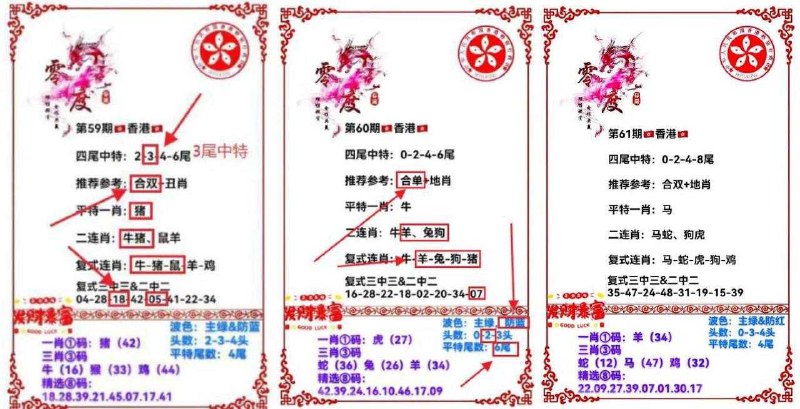 零度
第59期 香港
3尾中特
四尾中特：2-3-4-6尾
推荐参考：合双+丑肖
平特一肖：猪
二连肖：牛猪、鼠羊
复式连肖：牛-猪-鼠-羊-鸡
复式三中三&二中二
04-28-18-42-05-41-22-34
发财暴富
GOOD LUCK
波色：主绿&防蓝
头数：2-3-4头
平特尾数：4尾
一肖①码：猪（42）
三肖③码
牛（16）猴（33）鸡（44）
精选⑧码：
18.28.39.21.45.07.17.41
零度
第60期 香港
四尾中特：0-2-4-6尾
推荐参考：合单+地肖
平特一肖：牛
二连肖：牛羊、兔狗
复式连肖：牛-羊-兔-狗-猪
复式三中三&二中二
16-28-22-18-02-20-34-07
发财暴富
GOOD LUCK
波色：主绿&防蓝
头数：0-2-3头
平特尾数：6尾
一肖①码：虎（27）
三肖③码
蛇（36）兔（26）羊（34）
精选⑧码：
42.39.24.16.10.46.17.09
零度
第61期 香港
四尾中特：0-2-4-8尾
推荐参考：合双+地肖
平特一肖：马
二连肖：马蛇、狗虎
复式连肖：马-蛇-虎-狗-鸡
复式三中三&二中二
35-47-24-48-31-19-15-39
发财暴富
GOOD LUCK
波色：主绿&防红
头数：0-3-4头
平特尾数：4尾
一肖①码：羊（34）
三肖③码
蛇（12）马（47）鸡（32）
精选⑧码：
22.09.27.39.07.01.30.17